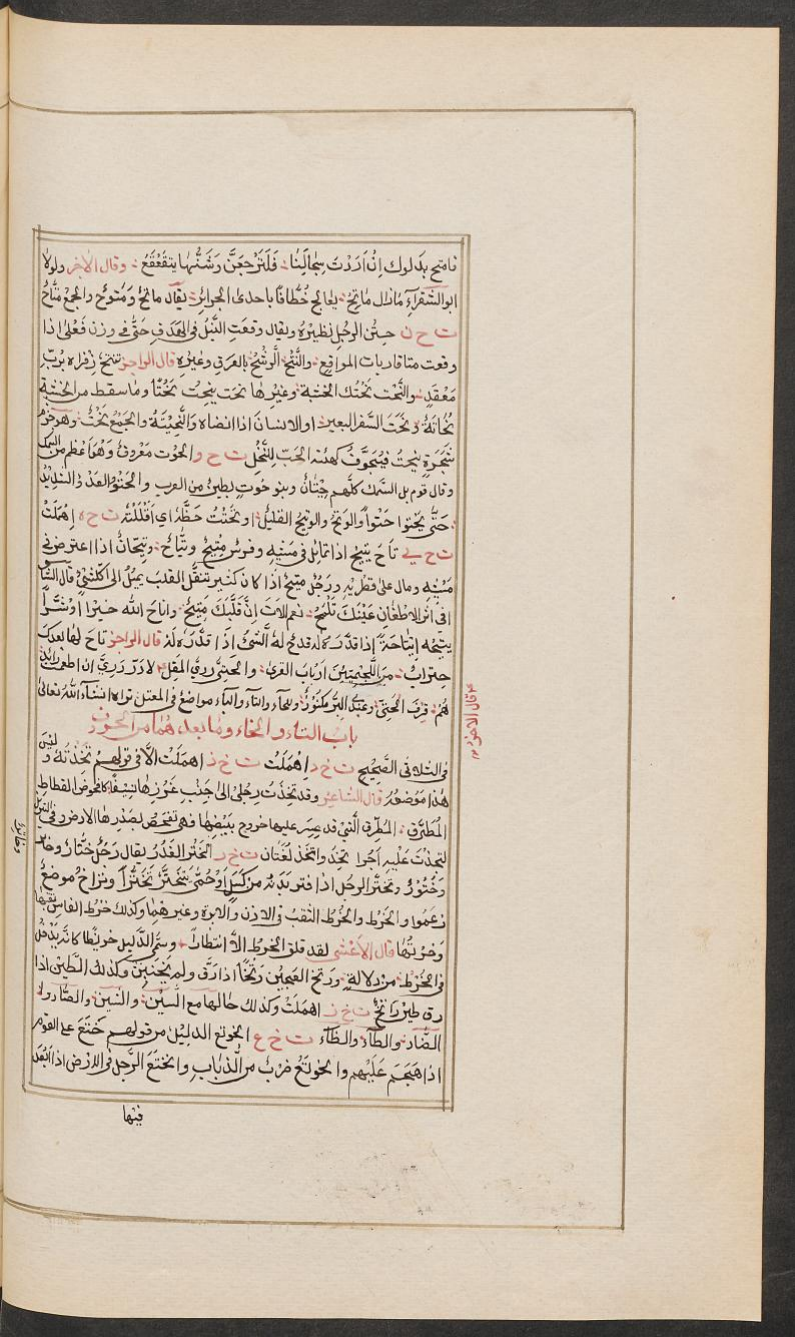 فامتح بدلوك اِنْ اَرَدْتَ سِجَالَنَا فَلَتَرْجِعَنَّ رَشَنُّهَا يتقَعْقَعُ وقال الآخر ولولا
ابوالشَقْرَآءِ مَازال مَاتِحٌ يعالج خُطَّافًا باحدى الجرائرِ يقال ماتحٌ وَمَتوحٌ والجمع متّاحٌ
ت ح ن حِتْن الرجل نظيرهُ ويقال وقعَتِ النَّبْل فى الهَدَفِ حَتَنَى فى وزن فَعَلَى اذا
وقعت متقاربات المواقع والنَّتْح الرَّشْحُ بالعرق وغيرِه قال الراجز تنتح ذفراه بُربّ
مَعْقَدِ والنَّحْت نَحْتك الخشبة وغيرها نحَت ينحِت نَحْتًا وما سقط من الخشبة
نُحاتَةٌ ونَحَتَ السَّفر البعير او الانسان اذا انضاه والنَّحِيْتَةُ والجمعْ نُحُتٌ وهو جزم
شَجَرَةٍ ينحتُ فيُجَوَّفُ كهئة الحَبّ للنَّحْل ت ح و الحُوْت مَعْروفٌ وَهُوَ اعْظم من السمك
وقال قوم بل السَّمَك كلَّهم حِيْتَانٌ وبنو حُوتٍ بطينٌ من العرب والحَتْوُ العَدْو الشديْد
حتى يحتوا حَتْوًا والوَتْحُ والوتيح القليلُ اوتحْتُ حَظَّهُ اى اَقْلَلْتُه ت ح ه اهْمَلَتْ
ت ح ي تاحَ يتيح اذا تمايَل فى مَشْيِهِ وفرسٌ مِتْيَحٌ وتَيَّاحٌ وتَيِّحَانٌ اذا اعترض فى
مَشْيِهِ ومال على قطرَيْهِ ورَجُلٌ مِتْيَحٌ اذا كان كثير تنقل القلب يميْلُ الى كلّ شئٍ قال الشا
افى اثر الاظعان عَيْنُكَ تلمَحُ نعم لات اِنَّ قَلْبَكَ مِتْيَحٌ واتاحَ الله خَيْرًا اوْ شَرًّا
يتيحه اِتَاحَةً اِذَا قدَّرَهُ له قد تُيحَ لهُ الشئ اذا قدَّرهُ لهُ قال الراجز تاحَ لها بعدك
حِنْزابٌ مِنَ اللُّجَيْمِيّيْنَ اَرْبَاب القرى والحَتِىّ رَدِىُّ المُقْل لا دَرَّ دَرِّىَ ان اطعمْتُ رائدَ
هُمْ قِرْفَ الحَتِىِّ وَعِنْدِى البُرُّ مَكْنُوْزُ وللحآءِ والتآءِ واليآءِ مواضعُ فى المعتل تراه انشآء اللهُ تعالى
قال الاخر
باب التاء والخاء وما بعدهما من الحروف
فى الثلاثى الصحيح ت خ د اهْمَلَتْ ت خ ذ اهملَتْ الّا فى قولهم تَخِذْتُهُ وليس
هٰذا مَوْضعُهُ قال الشاعر وقد تخِذَتْ رِجْلى الى جَنْبِ غَرْزِهَا نَسِيْفًا كافحوص القطاطِ
المُطَرِّقِ المُطَرّق الَّتى قد عسر عليها خروج بَيْضِهَا فهى تفحص بصَدْرِها الارض وفى التنزيل
لتخذْتَ عليه اَجْرًا تخِذَ واتخذ لغتان ت خ ر الخَتْر الغَدْر يقال رَجُل خَتَّار وخاتر
وخَتُوْرٌ وتختَّر الرجل اذا فتر بَدَنُه من كَسَلٍ اوْ حُمَّى يَتَخَتَّرُ تَخَتُّرًا وتُراخ مَوضعٌ
زعَمُوا والخَرْت والخُرْت الثقب فى الاذن والابرة وغيرهما وكذلك خرْت الفاس ثقبها
وَخرْتُهَا قال الاَعْشى
فى الخَرْتِ من دلالته ورتخ العجين رَتْخًا اذا رَقّ ولم يختبز وكذلك الطّين اذا
رق طين راتخ ت خ ز اهمَلَتْ وكذلك حالها مع السّيْن والشين والصاد ولا
الضّاد والطآءِ والظّآء ت خ ع الخَوْتع الدليل من قولهم خَتَعَ على القوم
اذا هَجَمَ عَلَيْهِم والخَوْتَعُ ضربٌ من الذُّبابِ وانختَعَ الرَّجل فى الارض اذا اَبْعَدَ
فيها